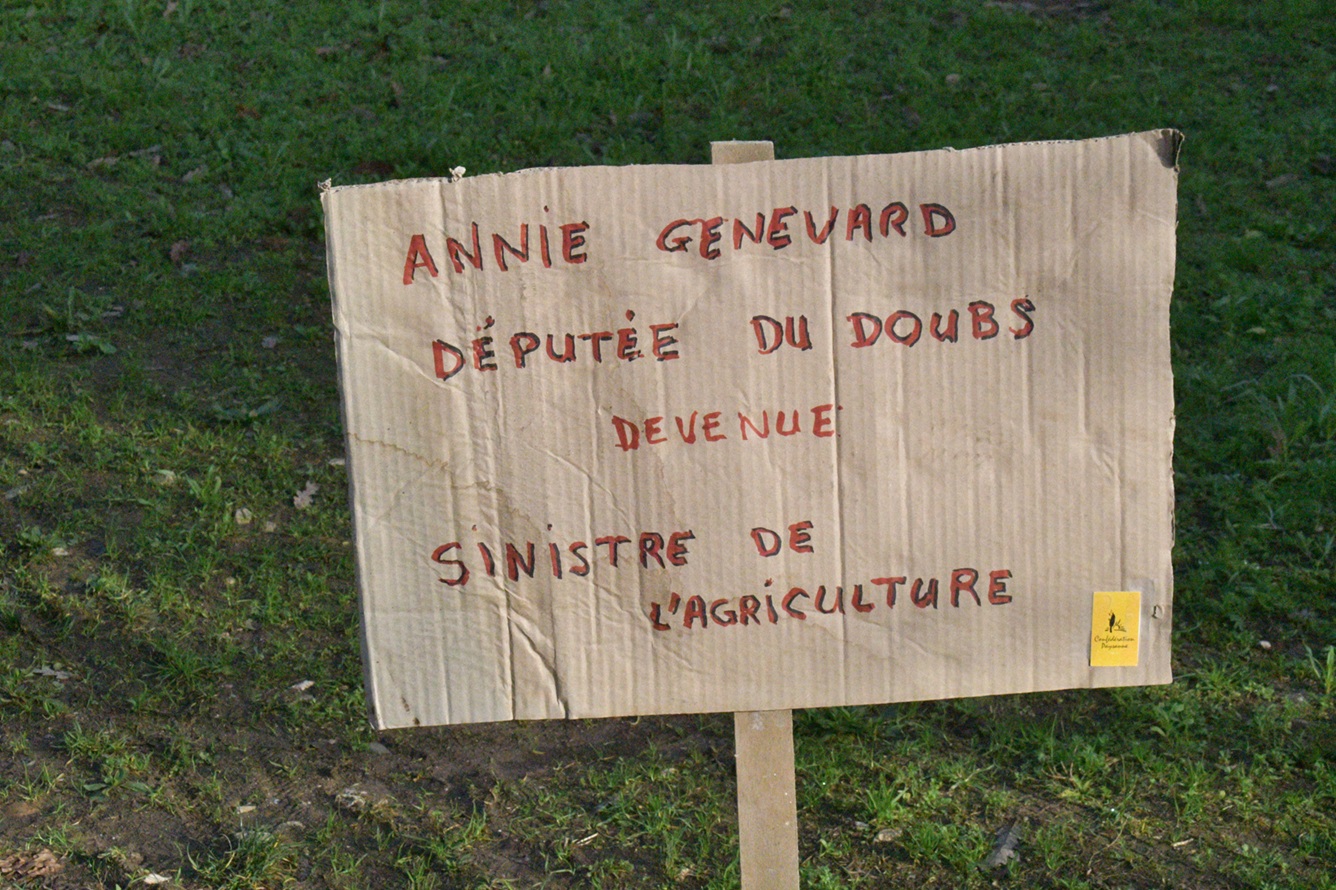 ANNIE GENEVARD
DÉPUTÉE DU DOUBS
DEVENUE
SINISTRE DE
L'AGRICULTURE
Confédération
Paysanne